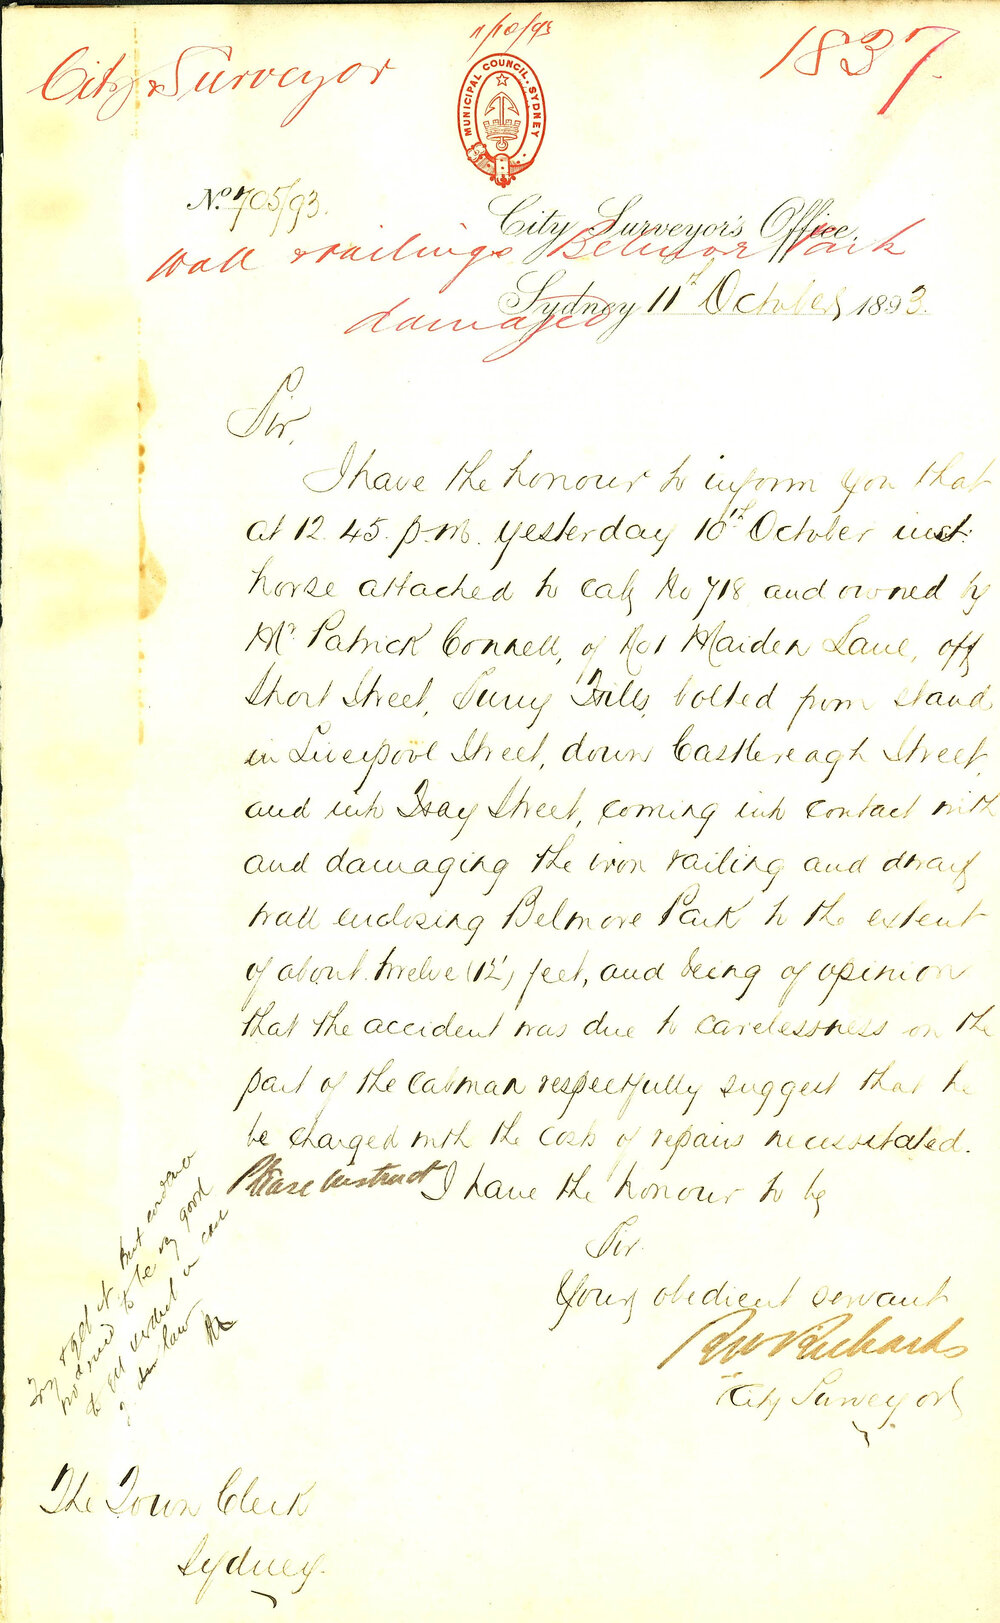 11/10/93
City Surveyor
1837.
MUNICIPAL COUNCIL. SYDNEY
No. 705/93.
City Surveyor's Office,
Wall & railings Belmore Park
Sydney 11th October 1893.
damaged
Sir,
I have the honour to inform you that
at 12.45. p.m. yesterday 10th October inst:
horse attached to cab No 718 and owned by
Mr Patrick Connell, of No 1 Maiden Lane, off
Short Street, Surry Hills, bolted from stand
in Liverpool Street, down Castlereagh Street,
and into Hay Street, coming into contact with
and damaging the iron railing and dwarf
wall enclosing Belmore Park to the extent
of about twelve (12') feet, and being of opinion
that the accident was due to carelessness on the
part of the cabman respectfully suggest that he
be charged with the cost of repairs necessitated.
Please instruct I have the honour to be
Sir.
Your obedient servant
R W Richards
City Surveyor
Try & get it but evidence
to be very good
to get verdict in case
law
The Town Clerk
Sydney.